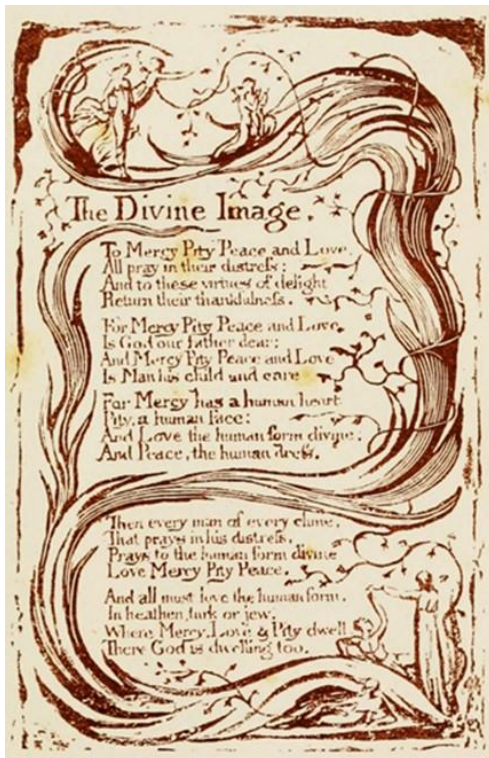 The Divine Image.
To Mercy Pity Peace and Love.
All pray in their distreſs:
And to these virtues of delight
Return their thankfulneſs.
For Mercy Pity Peace and Love.
Is God our father dear:
And Mercy Pity Peace and Love
Is Man his child and care
For Mercy has a human heart
Pity, a human face:
And Love the human form divine.
And Peace, the human dreſs.
Then every man of every clime,
That prays in his distreſs,
Prays to the human form divine
Love Mercy Pity Peace.
And all must love the human form.
In heathen, turk or jew.
Where Mercy, Love & Pity dwell
There God is dwelling too.